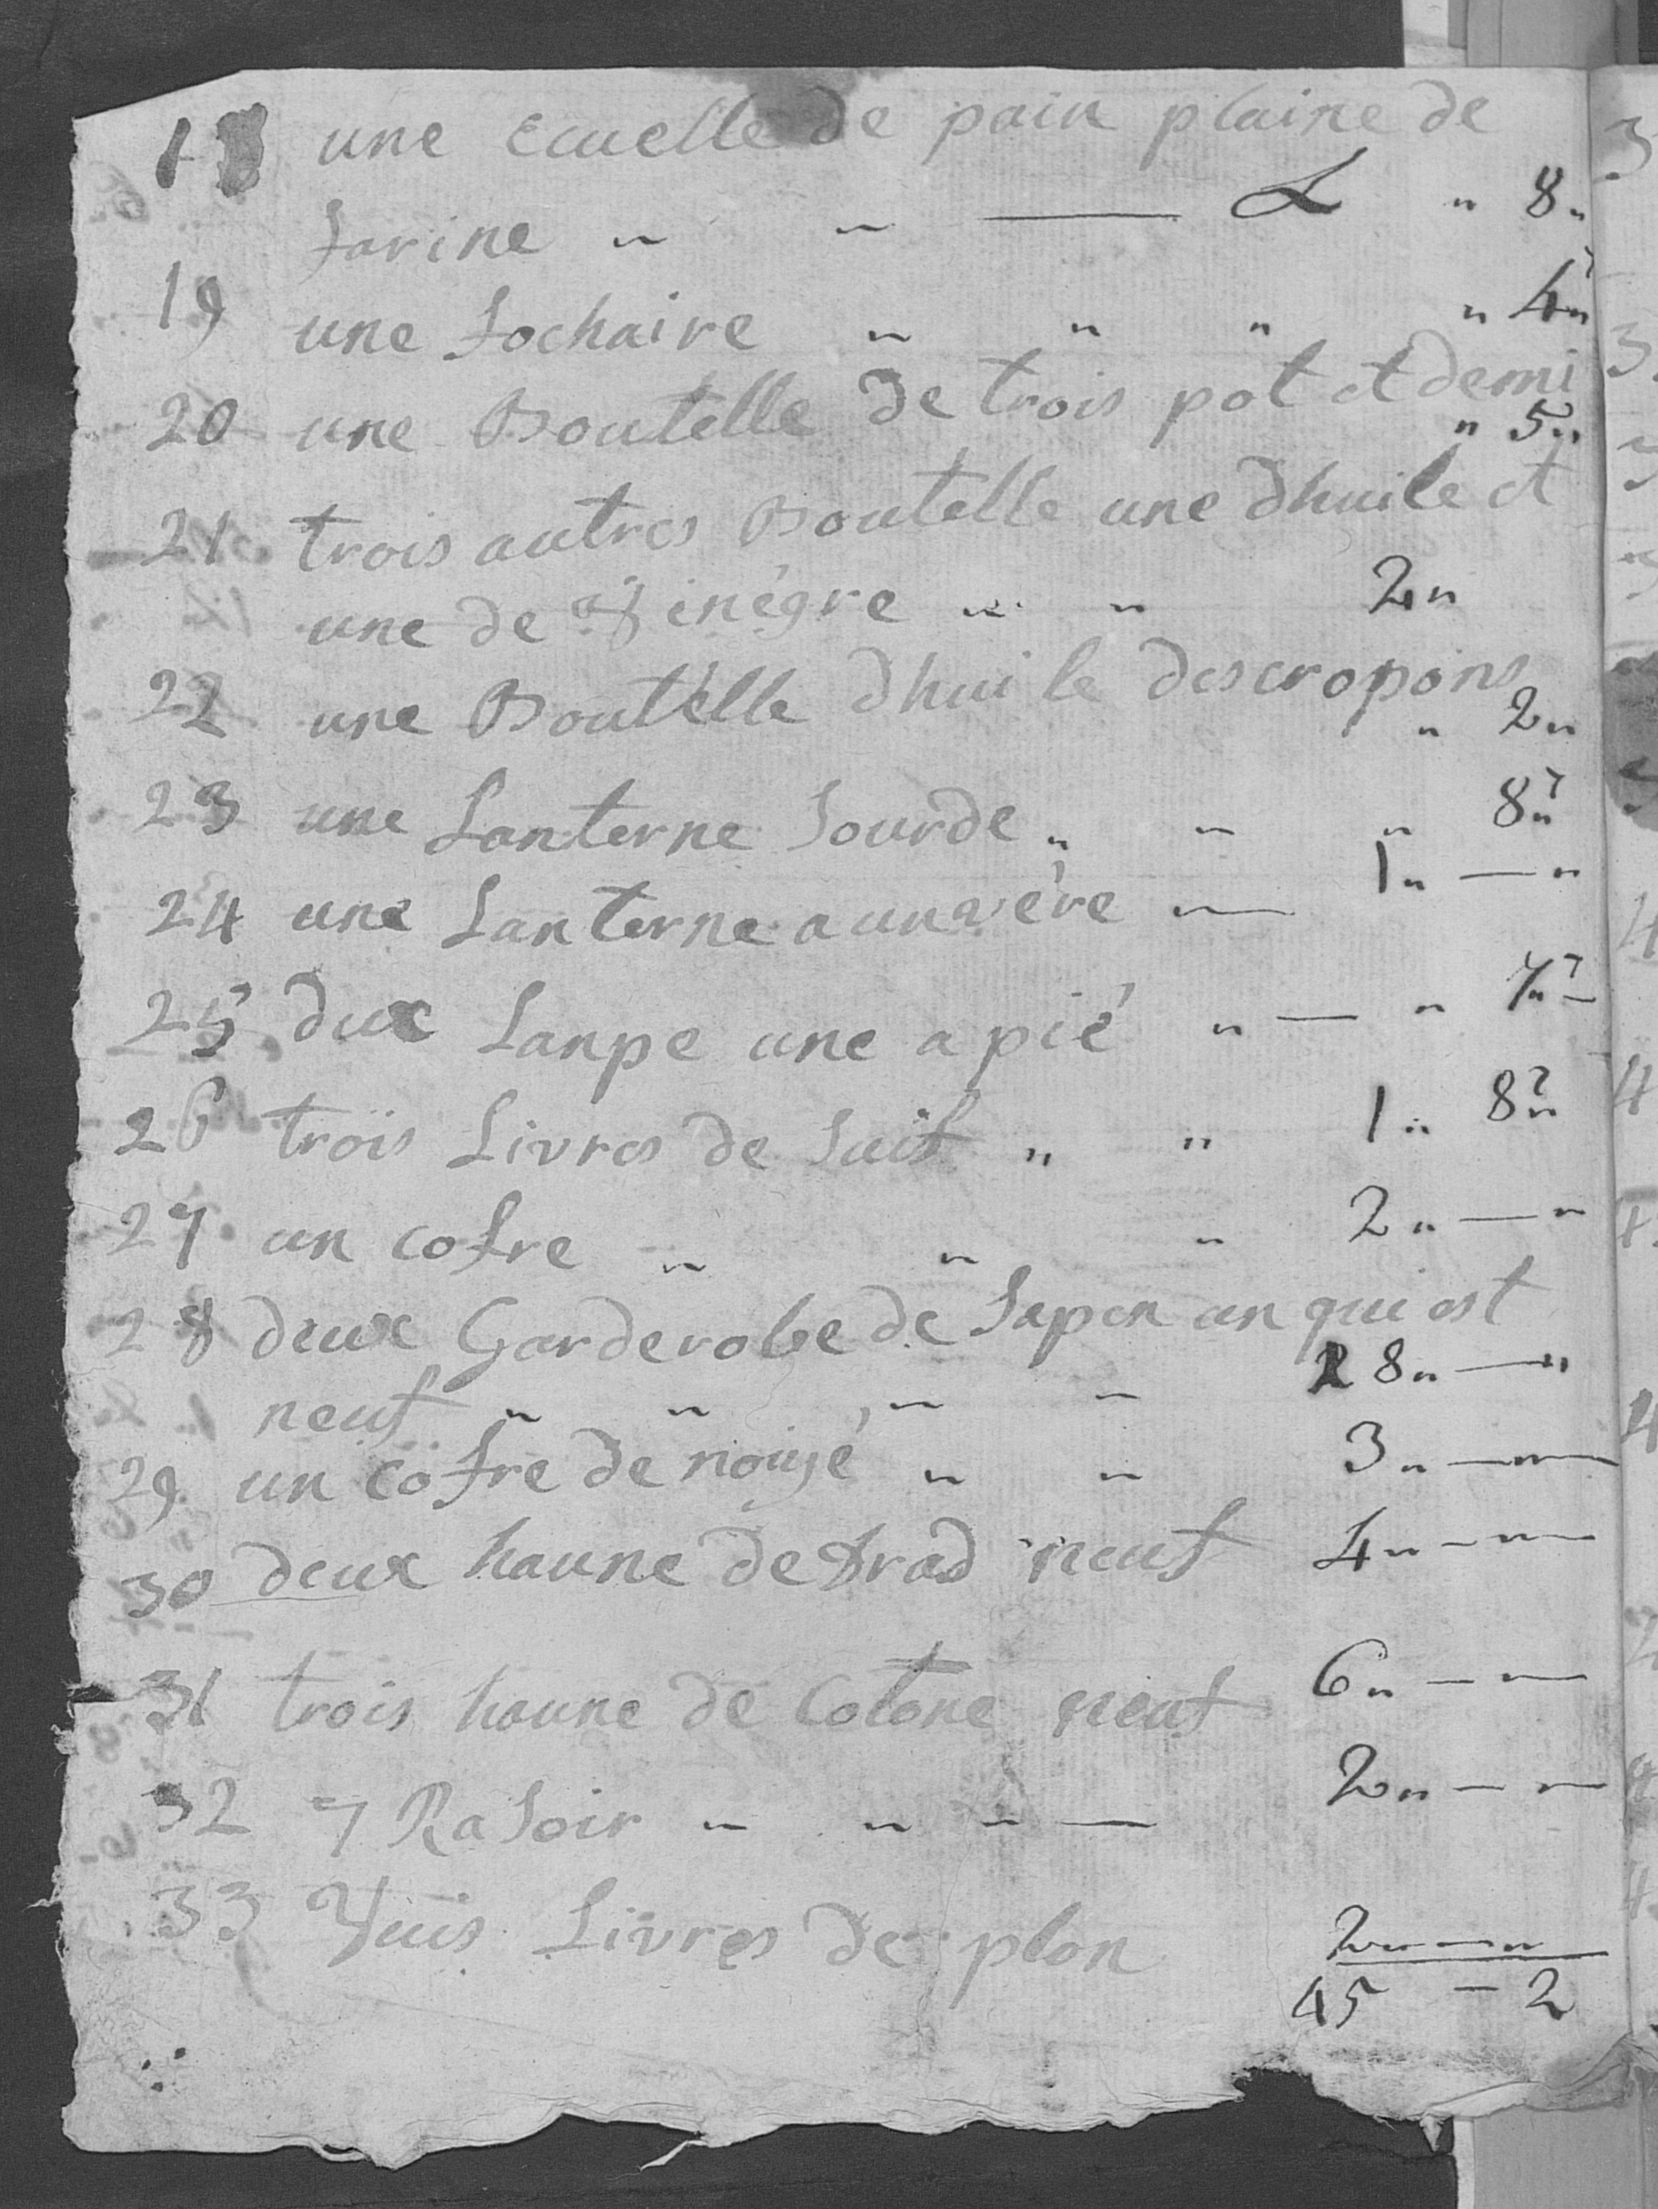 18 une Ecuelle de pain plaine de
farine " " — L " 8 "
19 une fochaire " " " " 4 "
20 une Boutelle de trois pot et demi
" 5 "
21 trois autres Boutelle une dhuile et
une de vinégre " " 2 "
22 une Boutelle dhuile descropions
" 2 "
23 une Lanterne Sourde " " " 8 "
24 une Lanterne a un vére — 1 " — "
25 dux Lanpe une a pié " — " 7 " —
26 trois Livres de Suif " " 1 " 8 "
27 un cofre " " " 2 " — "
28 deux Garderobe de Sapin un qui est
neuf " " " " 8 " — "
29 un cofre de noiyé " " 3 " — " —
30 deux haune de drad neuf 4 " — " —
31 trois haune de Cotone neuf 6 " — —
32 7 Rasoir " " " — 2 " — —
33 Livres de plon 2 " — "
45 — 2